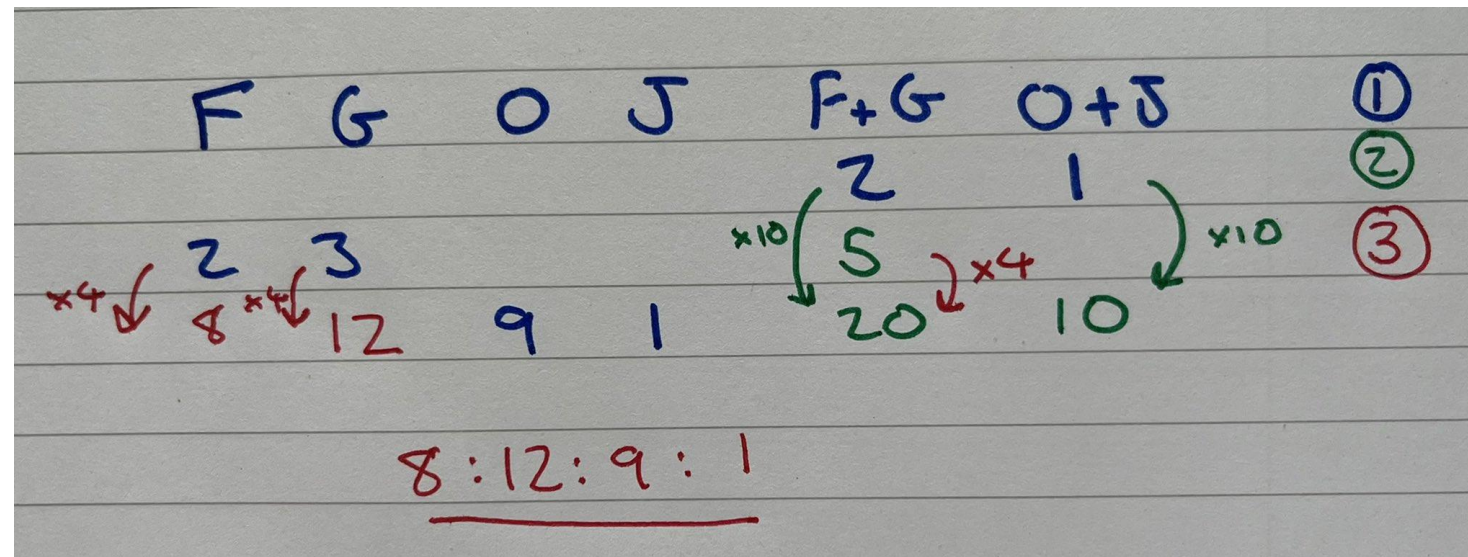 F G O J F+G O+J ①
2 1 ②
2 3 ×10 5 ×4 ×10 ③
×4 8 ×4 12 9 1 20 10
8:12:9:1